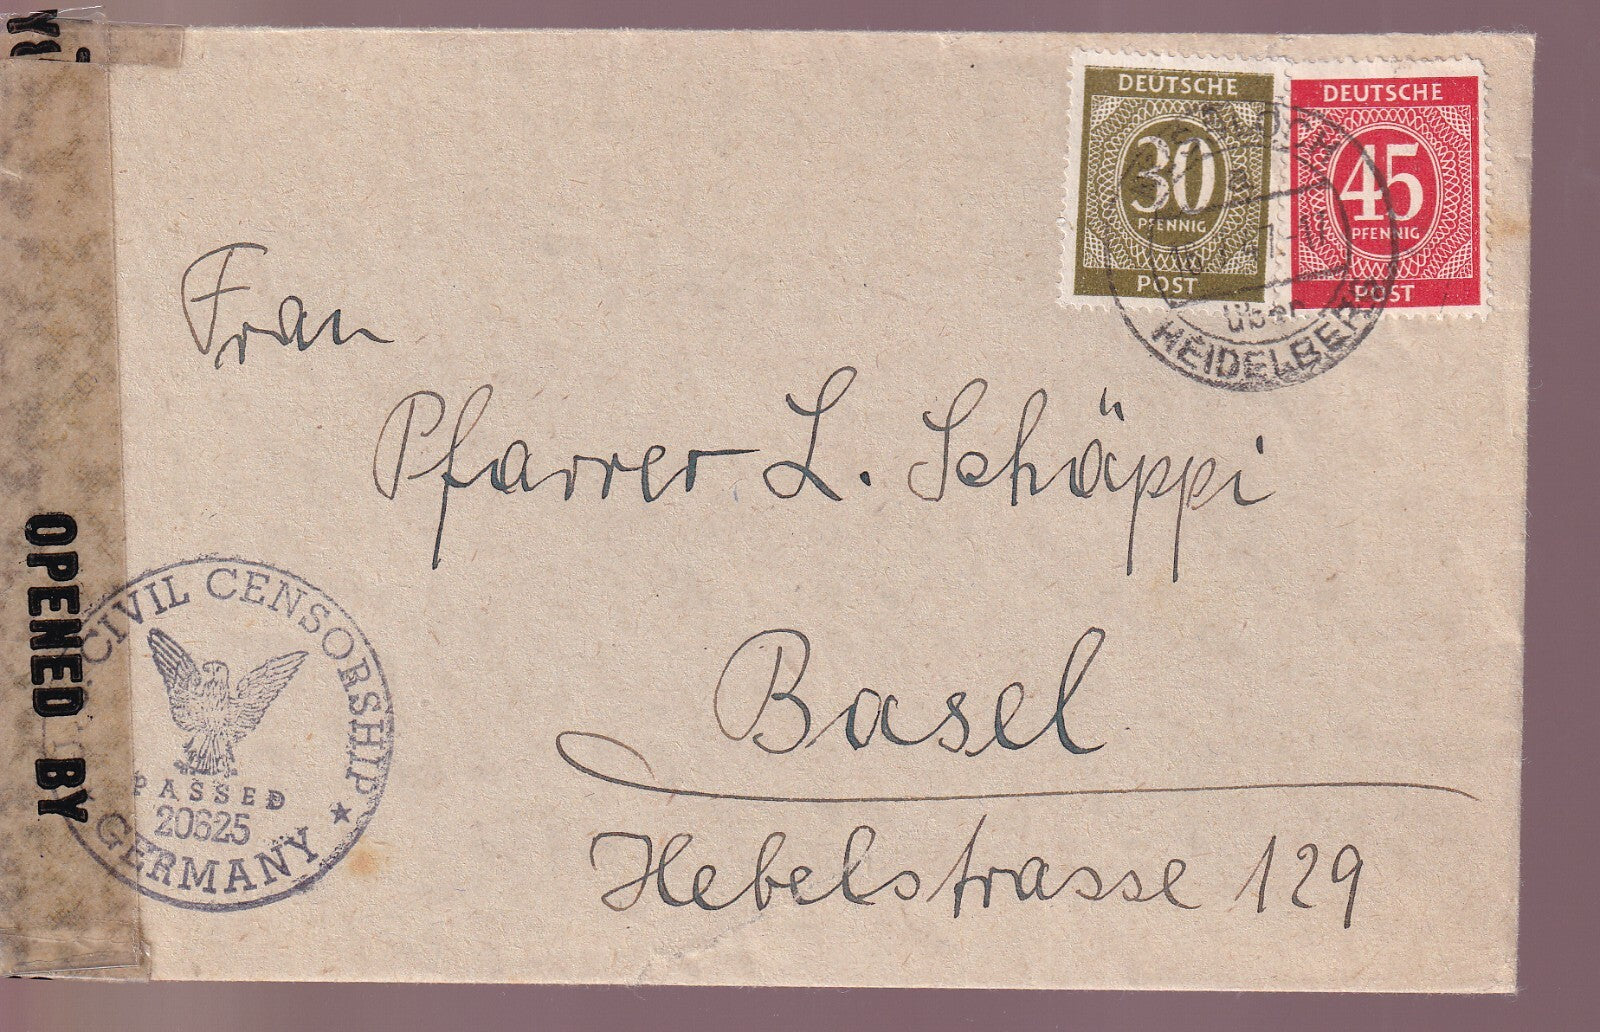 DEUTSCHE
30
PFENNIG
POST
DEUTSCHE
45
PFENNIG
POST
über
HEIDELBERG
Frau
Pfarrer L. Schäppi
Basel
Hebelstrasse 129
OPENED BY
CIVIL CENSORSHIP
PASSED
20625
GERMANY